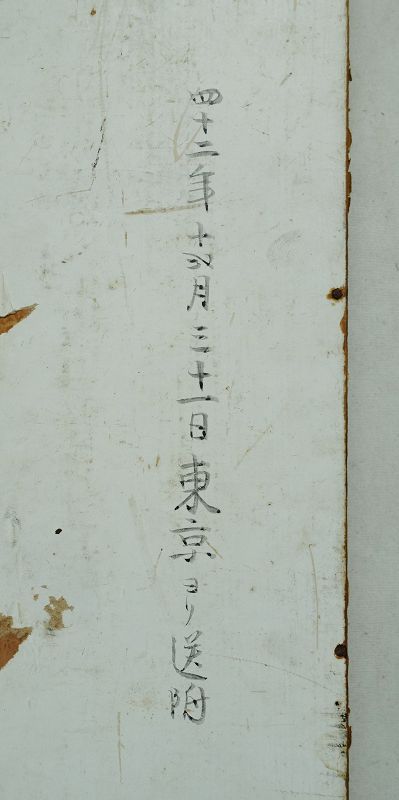 四十二年十二月三十一日東京ヨリ送附